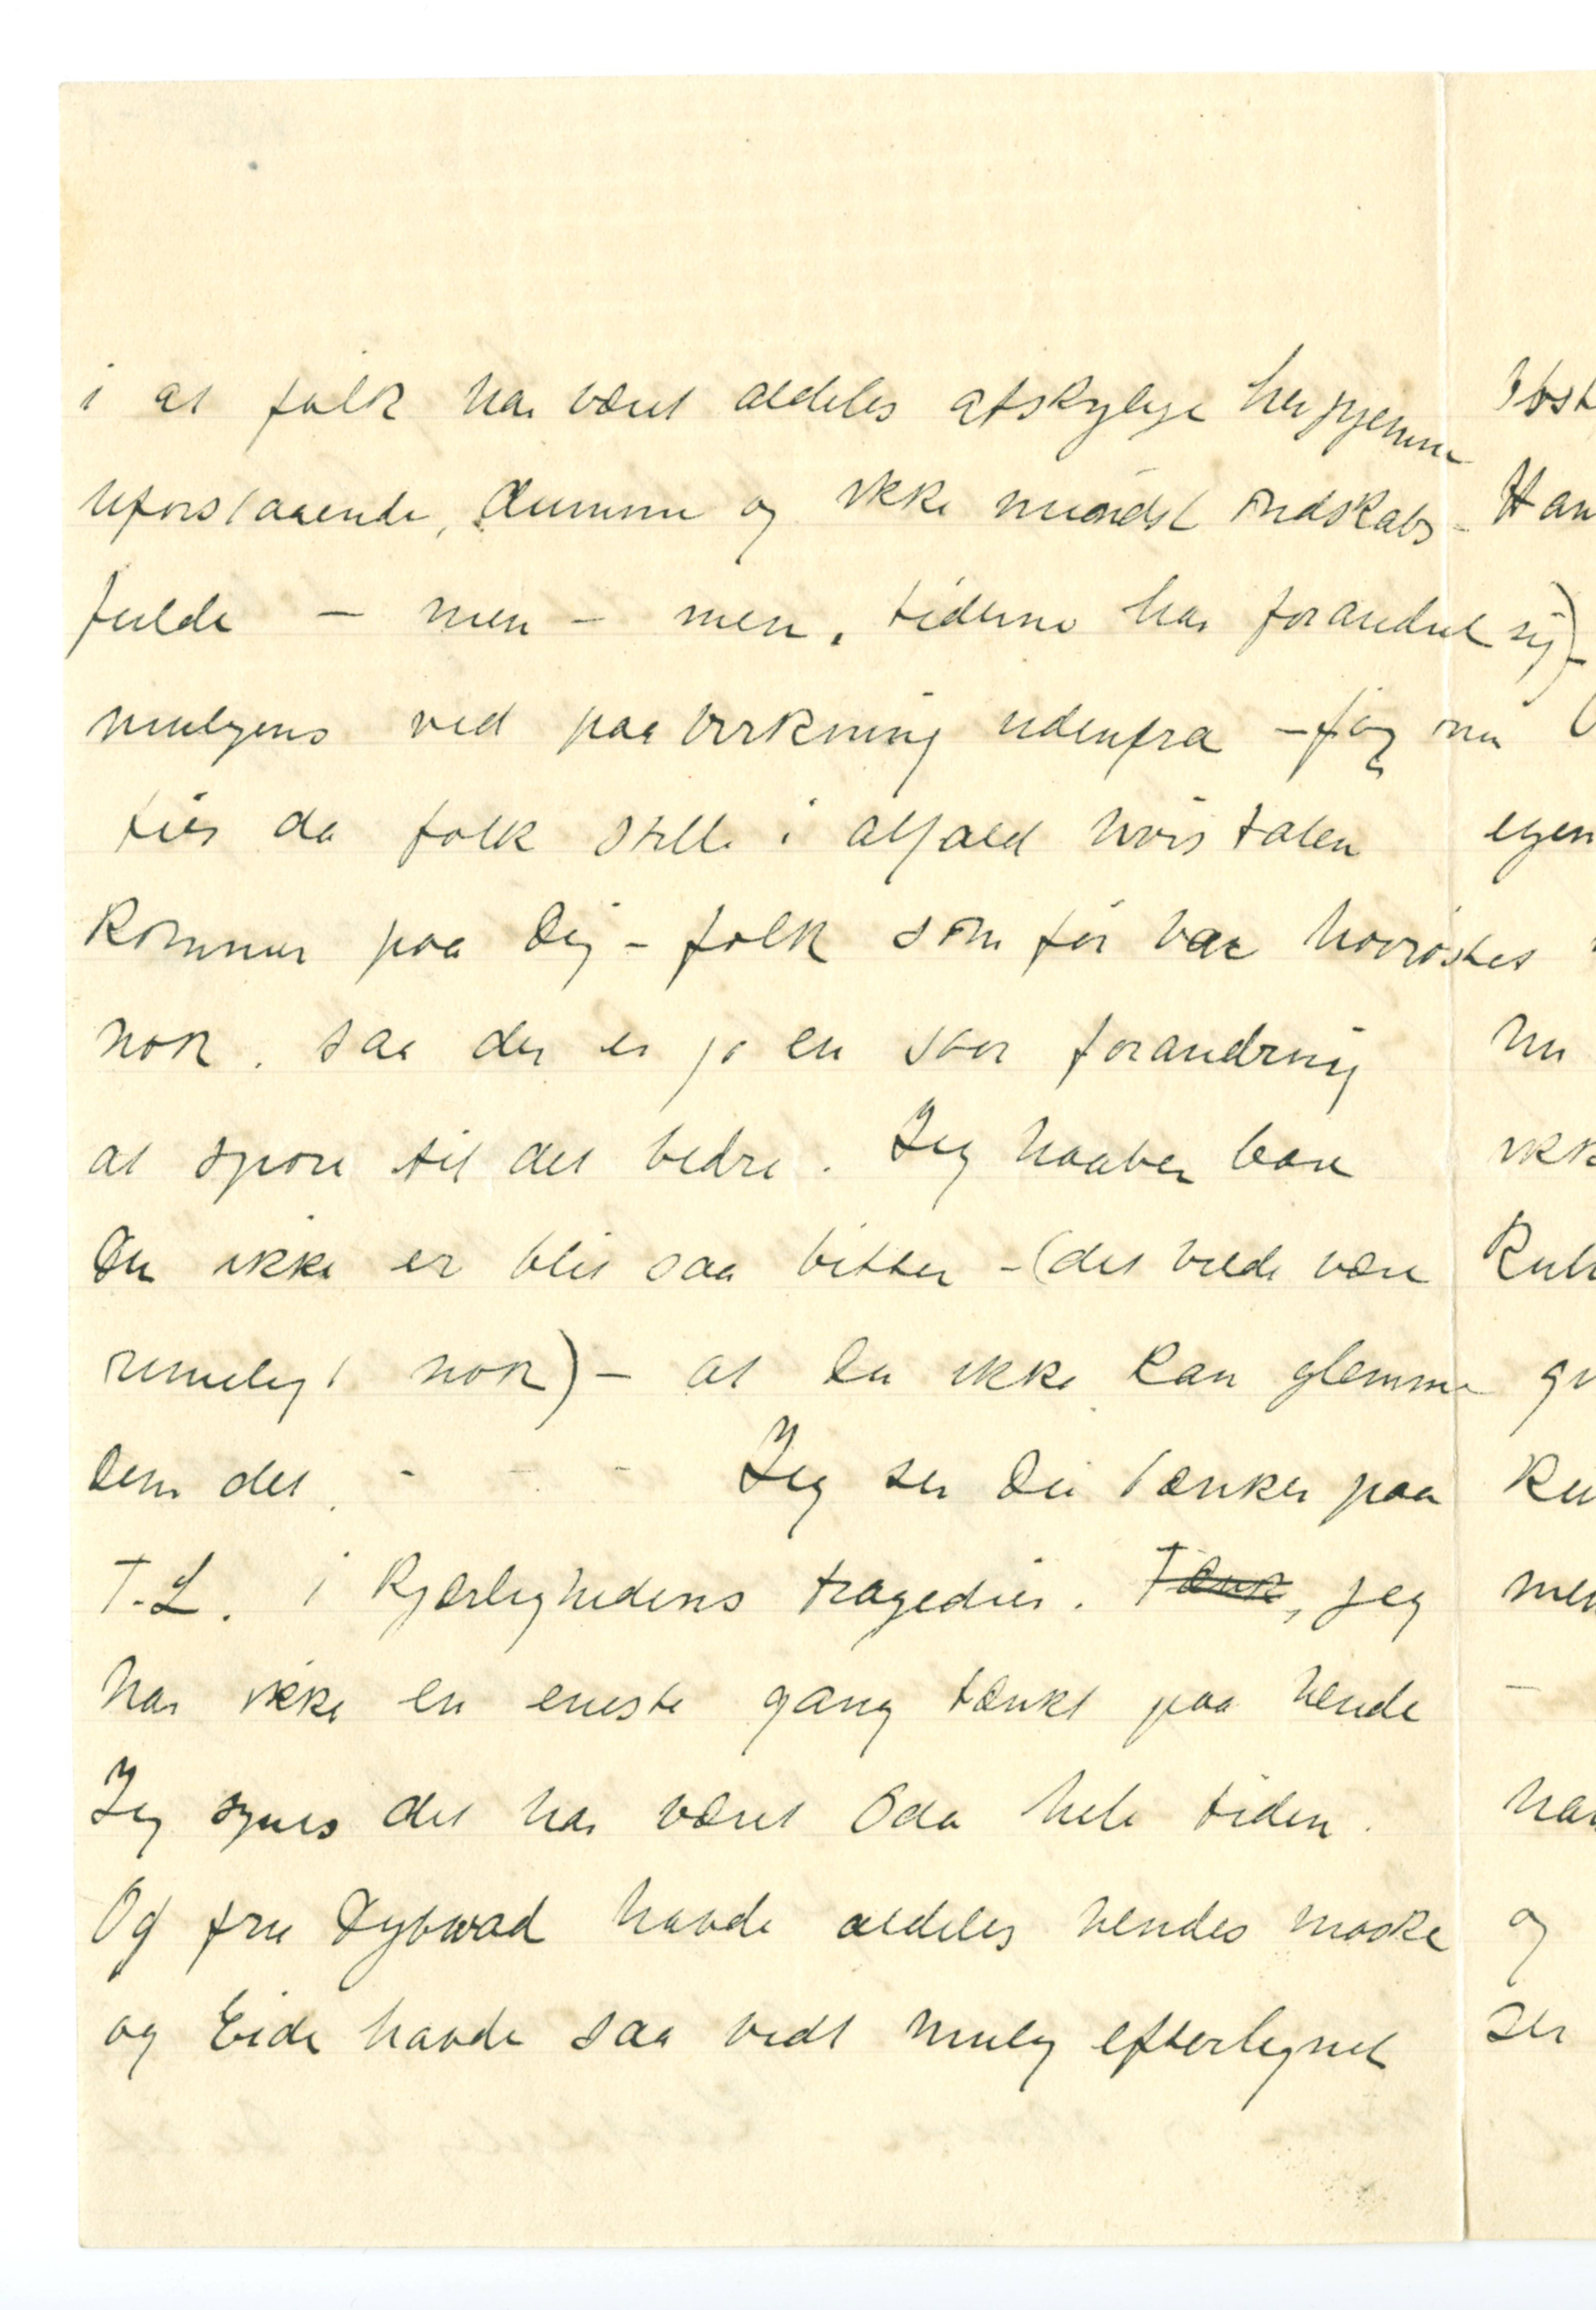 i at folk har været aldeles afskylige herhjemme
uforstaaende, dumme og ikke mindst ondskabs-
fulde – men – men, tiderne har forandret sig)–
muligens ved paavirkning udenfra – og nu
ties da folk stille i alfald hvis talen
kommer paa Dig – folk som før var høirøstet
nok. saa der er jo en stor forandring
at spore til det bedre. Jeg haaber bare
Du ikke er blit saa bitter – (det vilde være
rimeligt nok) – at Du ikke kan glemme
dem det. - - - Jeg ser Du tænker paa
T.L. i Kjærlighedens tragedier. Tænk, jeg
har ikke en eneste gang tænkt paa hende
Jeg synes det har været Oda hele tiden.
Og fru Dybwad havde aldeles hendes maske
og Eide havde saa vidt mulig efterlignet
Han
egen
nu
ikk
men
–
har
og
ser